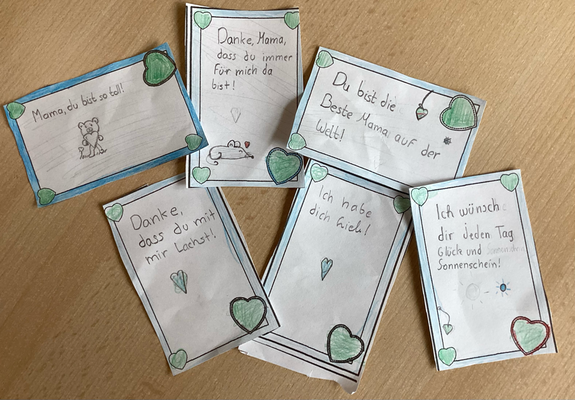 Mama, du bist so toll!
Danke, Mama,
dass du immer
Für mich da
bist!
Du bist die
Beste Mama auf der
Welt!
Danke,
dass du mit
mir Lachst!
Ich habe
dich Lieb!
Ich wünsch
dir Jeden Tag
Glück und
Sonnenschein!